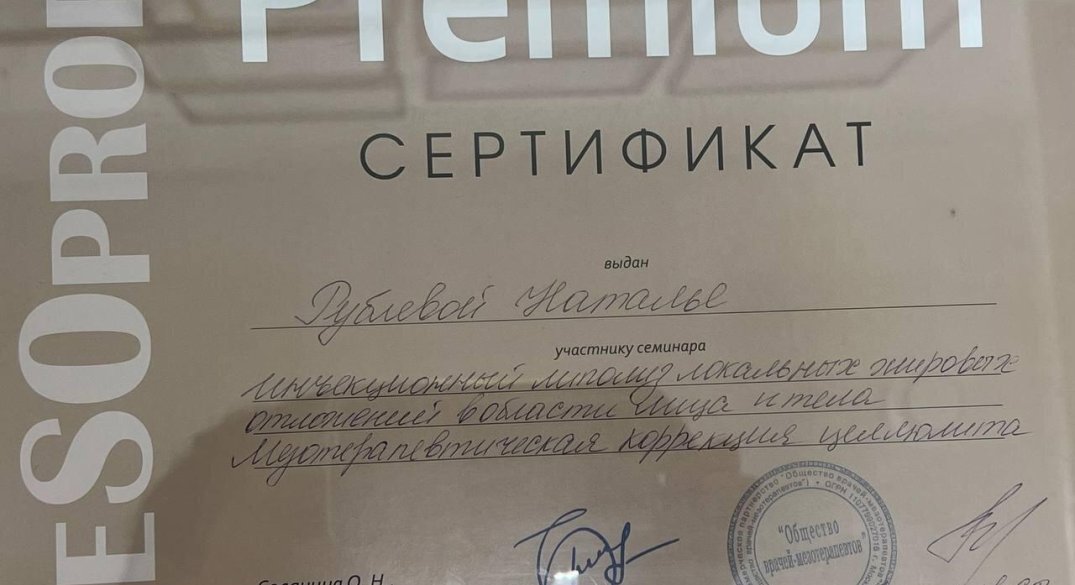 Premium
СЕРТИФИКАТ
выдан
Рублевой Наталье
участнику семинара
инъекционный липолиз локальных жировых
отложений в области лица и тела
Мезотерапевтическая коррекция целлюлита
"Общество
врачей-мезотерапевтов"
О. Н.
ESOPRO